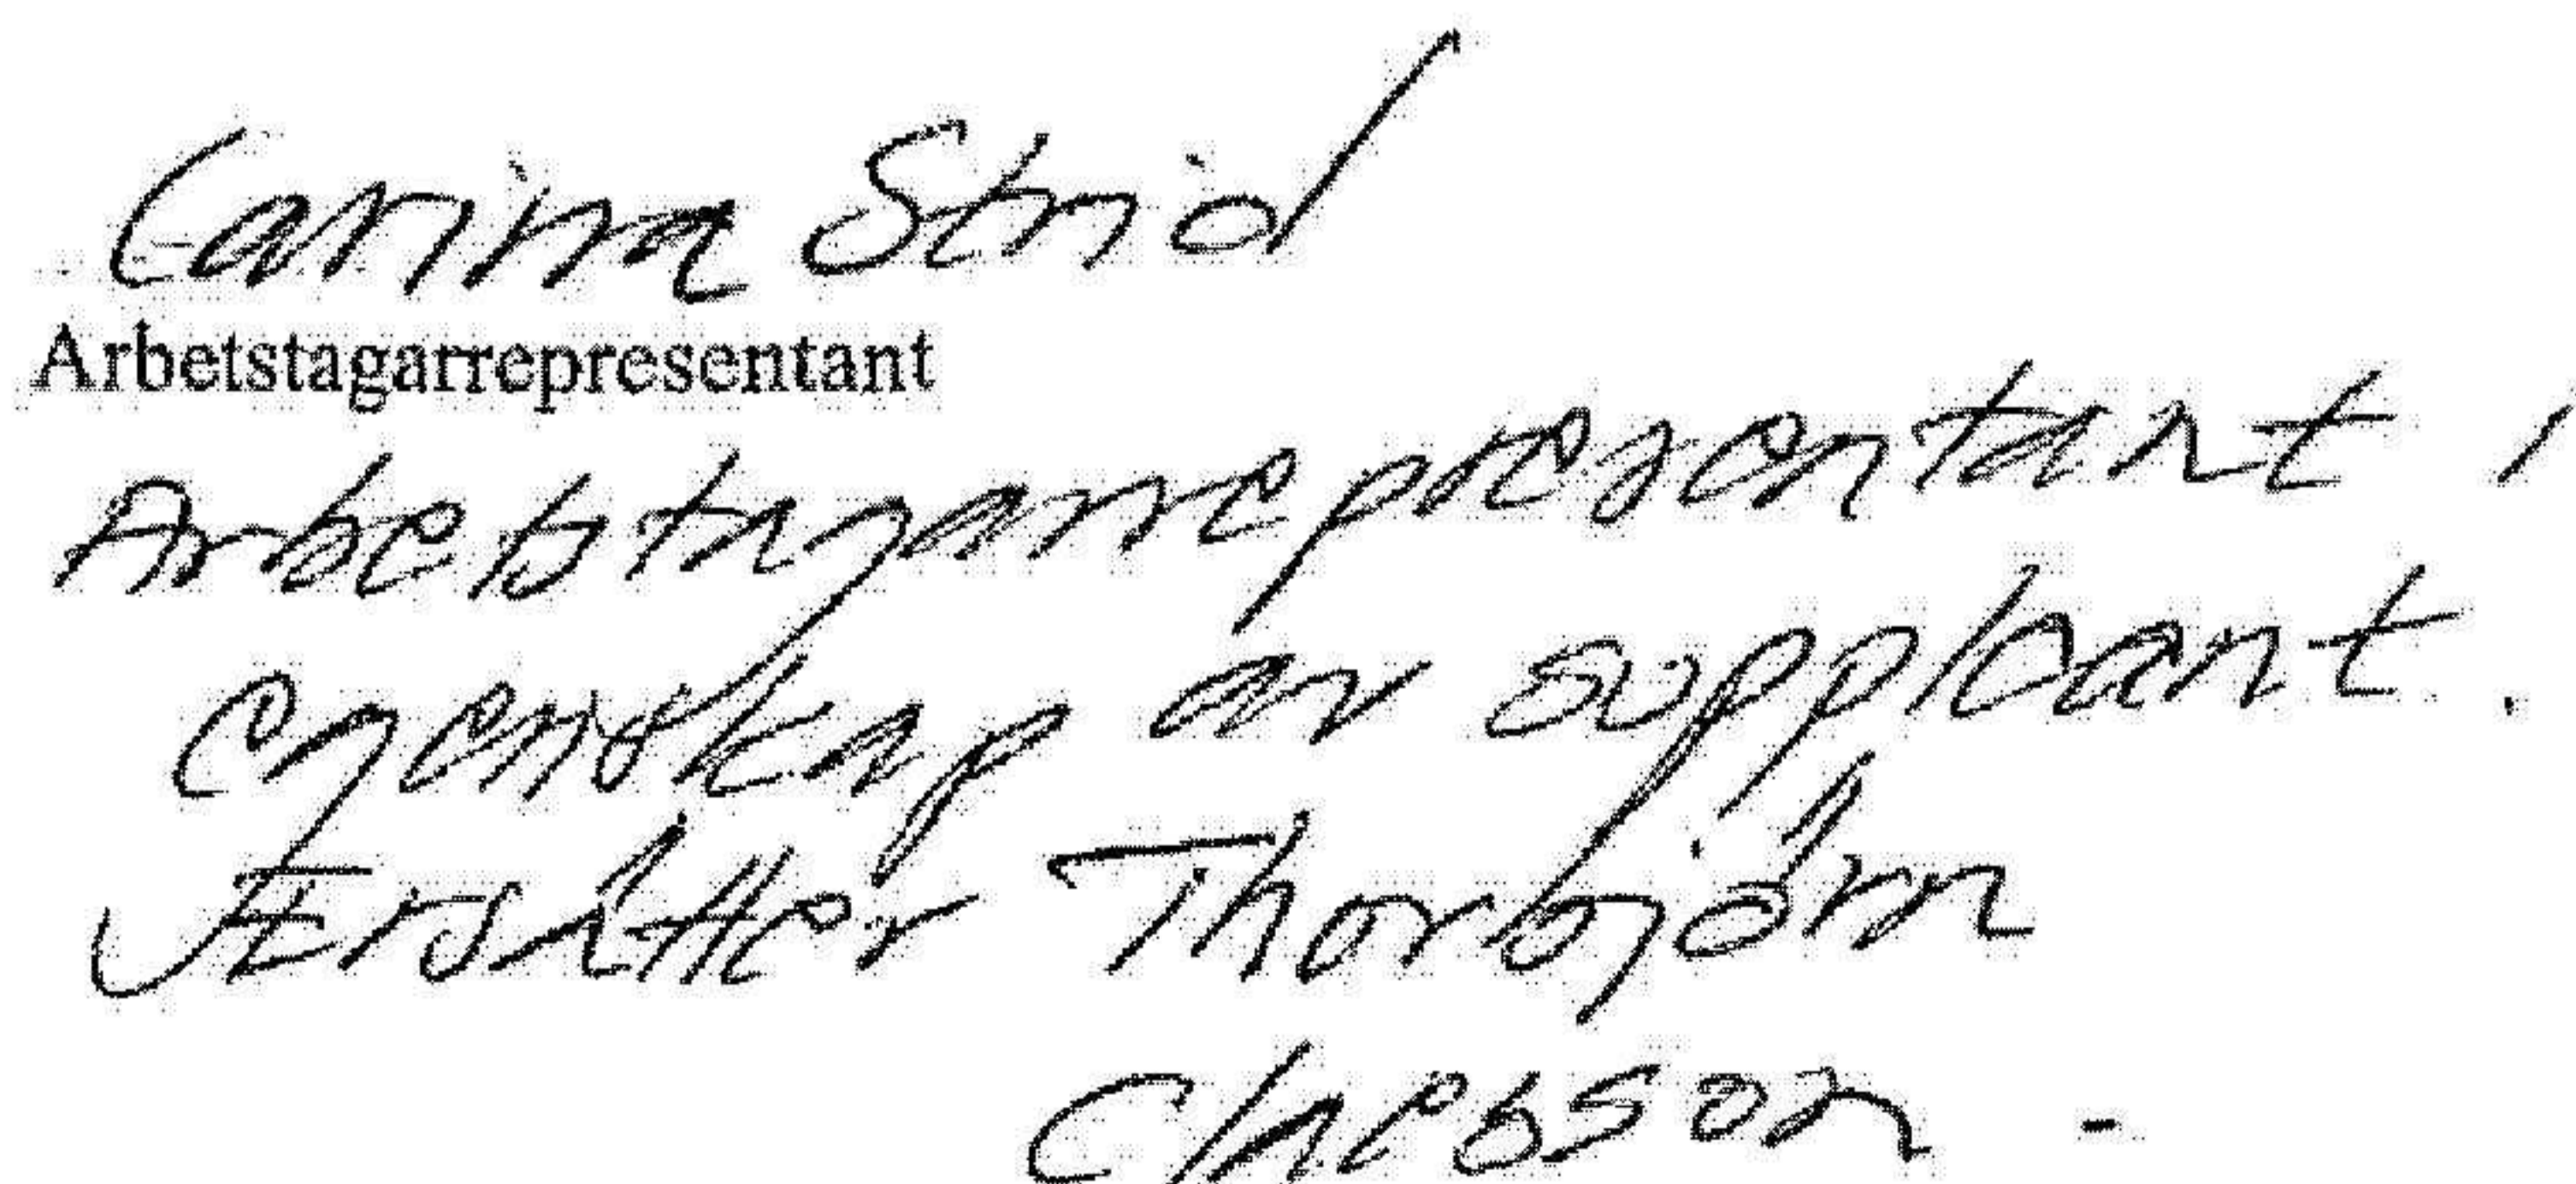 Carina Strid
Arbetstagarrepresentant
Arbetstagarrepresentant i
egenskap av suppleant.
Ersätter Thorbjörn
Claesson -